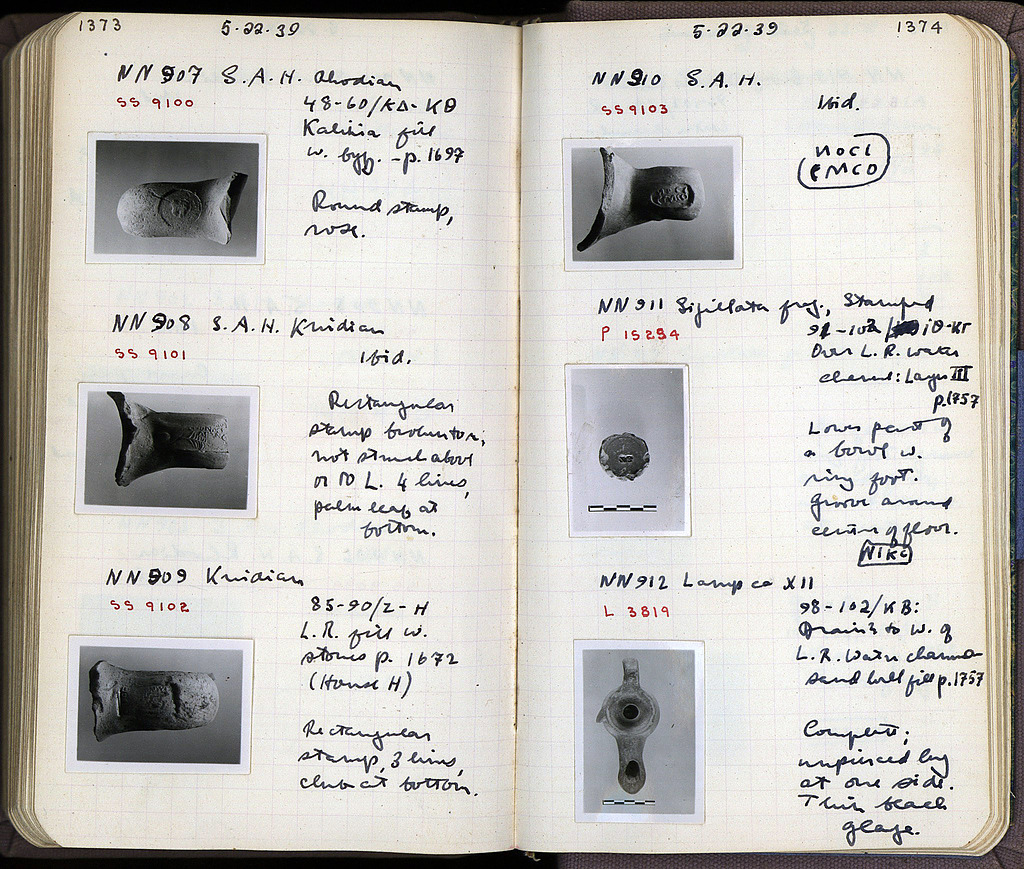 1373
5-22-39
NN 907 S.A.H. Rhodian
SS 9100
48-60/ΚΔ-ΚΘ
fill
w. - p. 1697
Round stamp,
rose.
NN 908 S.A.H. Knidian
SS 9101
Ibid.
Rectangular
stamp
not struck above
or to L. 4 lines,
palm leaf at
bottom.
NN 909 Knidian
SS 9102
85-90/Ζ-Η
L.R. fill w.
stones p. 1672
(House H)
Rectangular
stamp, 3 lines,
club at bottom.
1374
5-22-39
NN 910 S.A.H.
SS 9103
Ibid.
NN 911 Sigillata frag., Stamped
P 15254
Over L.R. water
channel: Layer III
p. 1757
Lower part of
a bowl w.
ring foot.
Groove around
center of floor.
NN 912 Lamp ca XII
L 3819
98-102/ΚΒ:
Drain 3 to W. of
L.R. Water channel
sand fill p. 1757
Complete;
unpierced lug
at one side.
Thin black
glaze.